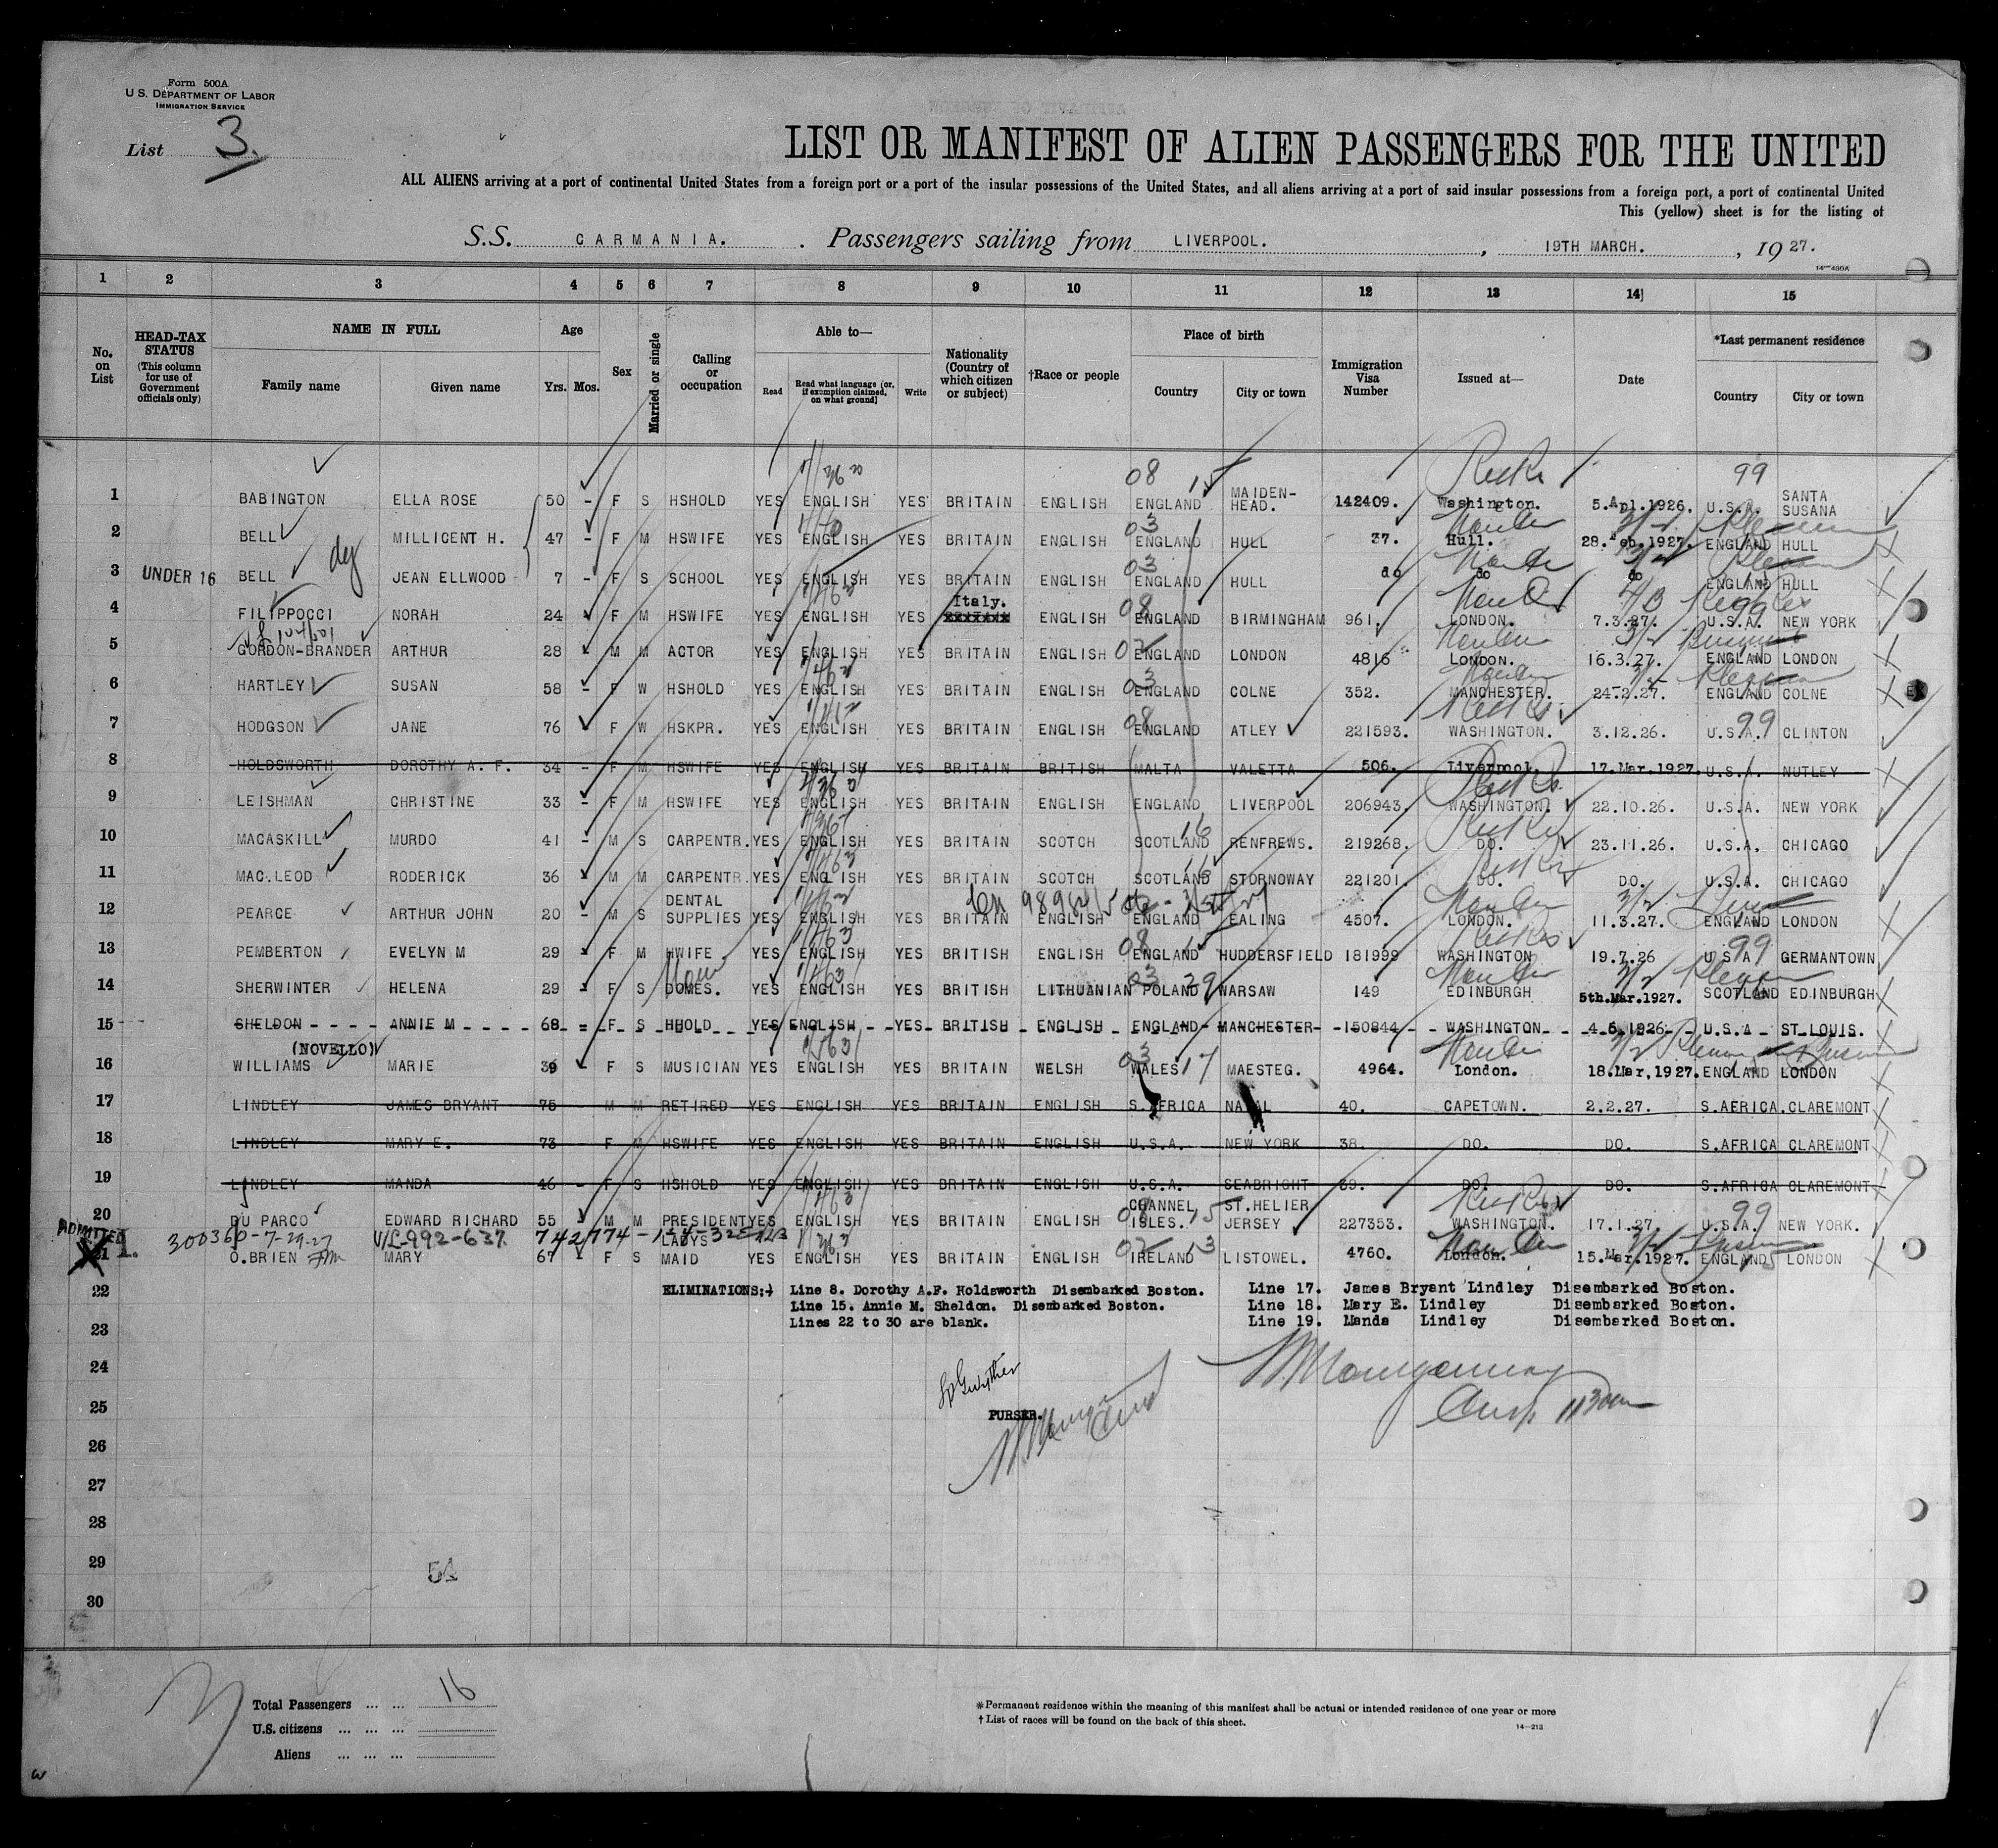 Form 500A
U. S. DEPARTMENT OF LABOR
IMMIGRATION SERVICE
List 3.
LIST OR MANIFEST OF ALIEN PASSENGERS FOR THE UNITED
ALL ALIENS arriving at a port of continental United States from a foreign port or a port of the insular possessions of the United States, and all aliens arriving at a port of said insular possessions from a foreign port, a port of continental United
This (yellow) sheet is for the listing of
S.S. CARMANIA. Passengers sailing from LIVERPOOL. , 19TH MARCH. , 1927.
14—430A
1 2 3 4 5 6 7 8 9 10 11 12 13 14 15
No. on List
HEAD-TAX STATUS (This column for use of Government officials only)
NAME IN FULL
Family name Given name
Age
Yrs. Mos.
Sex
Married or single
Calling or occupation
Able to—
Read Read what language (or, if exemption claimed, on what ground) Write
Nationality (Country of which citizen or subject)
†Race or people
Place of birth
Country City or town
Immigration Visa Number
Issued at—
Date
*Last permanent residence
Country City or town
1 BABINGTON ELLA ROSE 50 - F S HSHOLD YES ENGLISH YES BRITAIN ENGLISH ENGLAND MAIDEN-HEAD. 142409. Washington. 5.Apl.1926. U.S.A. SANTA SUSANA
2 BELL MILLICENT H. 47 - F M HSWIFE YES ENGLISH YES BRITAIN ENGLISH ENGLAND HULL 37. Hull. 28.Feb.1927. ENGLAND HULL
3 UNDER 16 BELL JEAN ELLWOOD 7 - F S SCHOOL YES ENGLISH YES BRITAIN ENGLISH ENGLAND HULL do do do ENGLAND HULL
4 FILIPPOCCI NORAH 24 F M HSWIFE YES ENGLISH YES Italy. ENGLISH ENGLAND BIRMINGHAM 961. LONDON. 7.3.27. U.S.A. NEW YORK
5 GORDON-BRANDER ARTHUR 28 M M ACTOR YES ENGLISH YES BRITAIN ENGLISH ENGLAND LONDON 4816 LONDON. 16.3.27. ENGLAND LONDON
6 HARTLEY SUSAN 58 - F W HSHOLD YES ENGLISH YES BRITAIN ENGLISH ENGLAND COLNE 352. MANCHESTER. 24-2.27. ENGLAND COLNE
7 HODGSON JANE 76 F W HSKPR. YES ENGLISH YES BRITAIN ENGLISH ENGLAND ATLEY 221593. WASHINGTON. 3.12.26. U.S.A. CLINTON
8 HOLDSWORTH DOROTHY A. F. 34 - F M HSWIFE YES ENGLISH YES BRITAIN BRITISH MALTA VALETTA 506. Liverpool. 17.Mar.1927. U.S.A. NUTLEY
9 LEISHMAN CHRISTINE 33 - F M HSWIFE YES ENGLISH YES BRITAIN ENGLISH ENGLAND LIVERPOOL 206943. WASHINGTON. 22.10.26. U.S.A. NEW YORK
10 MACASKILL MURDO 41 - M S CARPENTR. YES ENGLISH YES BRITAIN SCOTCH SCOTLAND RENFREWS. 219268. DO. 23.11.26. U.S.A. CHICAGO
11 MAC.LEOD RODERICK 36 M M CARPENTR. YES ENGLISH YES BRITAIN SCOTCH SCOTLAND STORNOWAY 221201. DO. DO. U.S.A. CHICAGO
12 PEARCE ARTHUR JOHN 20 - M S DENTAL SUPPLIES YES ENGLISH YES BRITAIN ENGLISH ENGLAND EALING 4507. LONDON. 11.3.27. ENGLAND LONDON
13 PEMBERTON EVELYN M 29 - F M HWIFE YES ENGLISH YES BRITISH ENGLISH ENGLAND HUDDERSFIELD 181999 WASHINGTON 19.7.26 U.S.A. GERMANTOWN
14 SHERWINTER HELENA 29 - F S DOMES. YES ENGLISH YES BRITISH LITHUANIAN POLAND WARSAW 149 EDINBURGH 5th.Mar.1927. SCOTLAND EDINBURGH
15 SHELDON ANNIE M 68 - F S HHOLD YES ENGLISH YES BRITISH ENGLISH ENGLAND MANCHESTER 150844 WASHINGTON 4.5.1926 U.S.A ST.LOUIS.
(NOVELLO)
16 WILLIAMS MARIE 39 F S MUSICIAN YES ENGLISH YES BRITAIN WELSH WALES MAESTEG. 4964. London. 18.Mar,1927. ENGLAND LONDON
17 LINDLEY JAMES BRYANT 75 M M RETIRED YES ENGLISH YES BRITAIN ENGLISH S.AFRICA NATAL 40. CAPETOWN. 2.2.27. S.AFRICA. CLAREMONT
18 LINDLEY MARY E. 73 F M HSWIFE YES ENGLISH YES BRITAIN ENGLISH U.S.A. NEW YORK 38. DO. DO. S.AFRICA CLAREMONT
19 LINDLEY MANDA 46 - F S HSHOLD YES ENGLISH YES BRITAIN ENGLISH U.S.A. SEABRIGHT 39. DO. DO. S.AFRICA CLAREMONT
20 DU PARCQ EDWARD RICHARD 55 M M PRESIDENT YES ENGLISH YES BRITAIN ENGLISH CHANNEL ISLES. ST.HELIER JERSEY 227353. WASHINGTON. 17.1.27. U.S.A. NEW YORK.
ADMITTED V/L-992-637
21 O.BRIEN MARY 67 - F S LADYS MAID YES ENGLISH YES BRITAIN ENGLISH IRELAND LISTOWEL. 4760. London. 15.Mar.1927. ENGLAND LONDON
22 ELIMINATIONS:- Line 8. Dorothy A.F. Holdsworth Disembarked Boston. Line 17. James Bryant Lindley Disembarked Boston.
Line 15. Annie M. Sheldon. Disembarked Boston. Line 18. Mary E. Lindley Disembarked Boston.
23 Lines 22 to 30 are blank. Line 19. Manda Lindley Disembarked Boston.
24
25 PURSER.
26
27
28
29
30
Total Passengers ... ... 16
U.S. citizens ... ... ...
Aliens ... ... ...
*Permanent residence within the meaning of this manifest shall be actual or intended residence of one year or more
† List of races will be found on the back of this sheet.
14—213